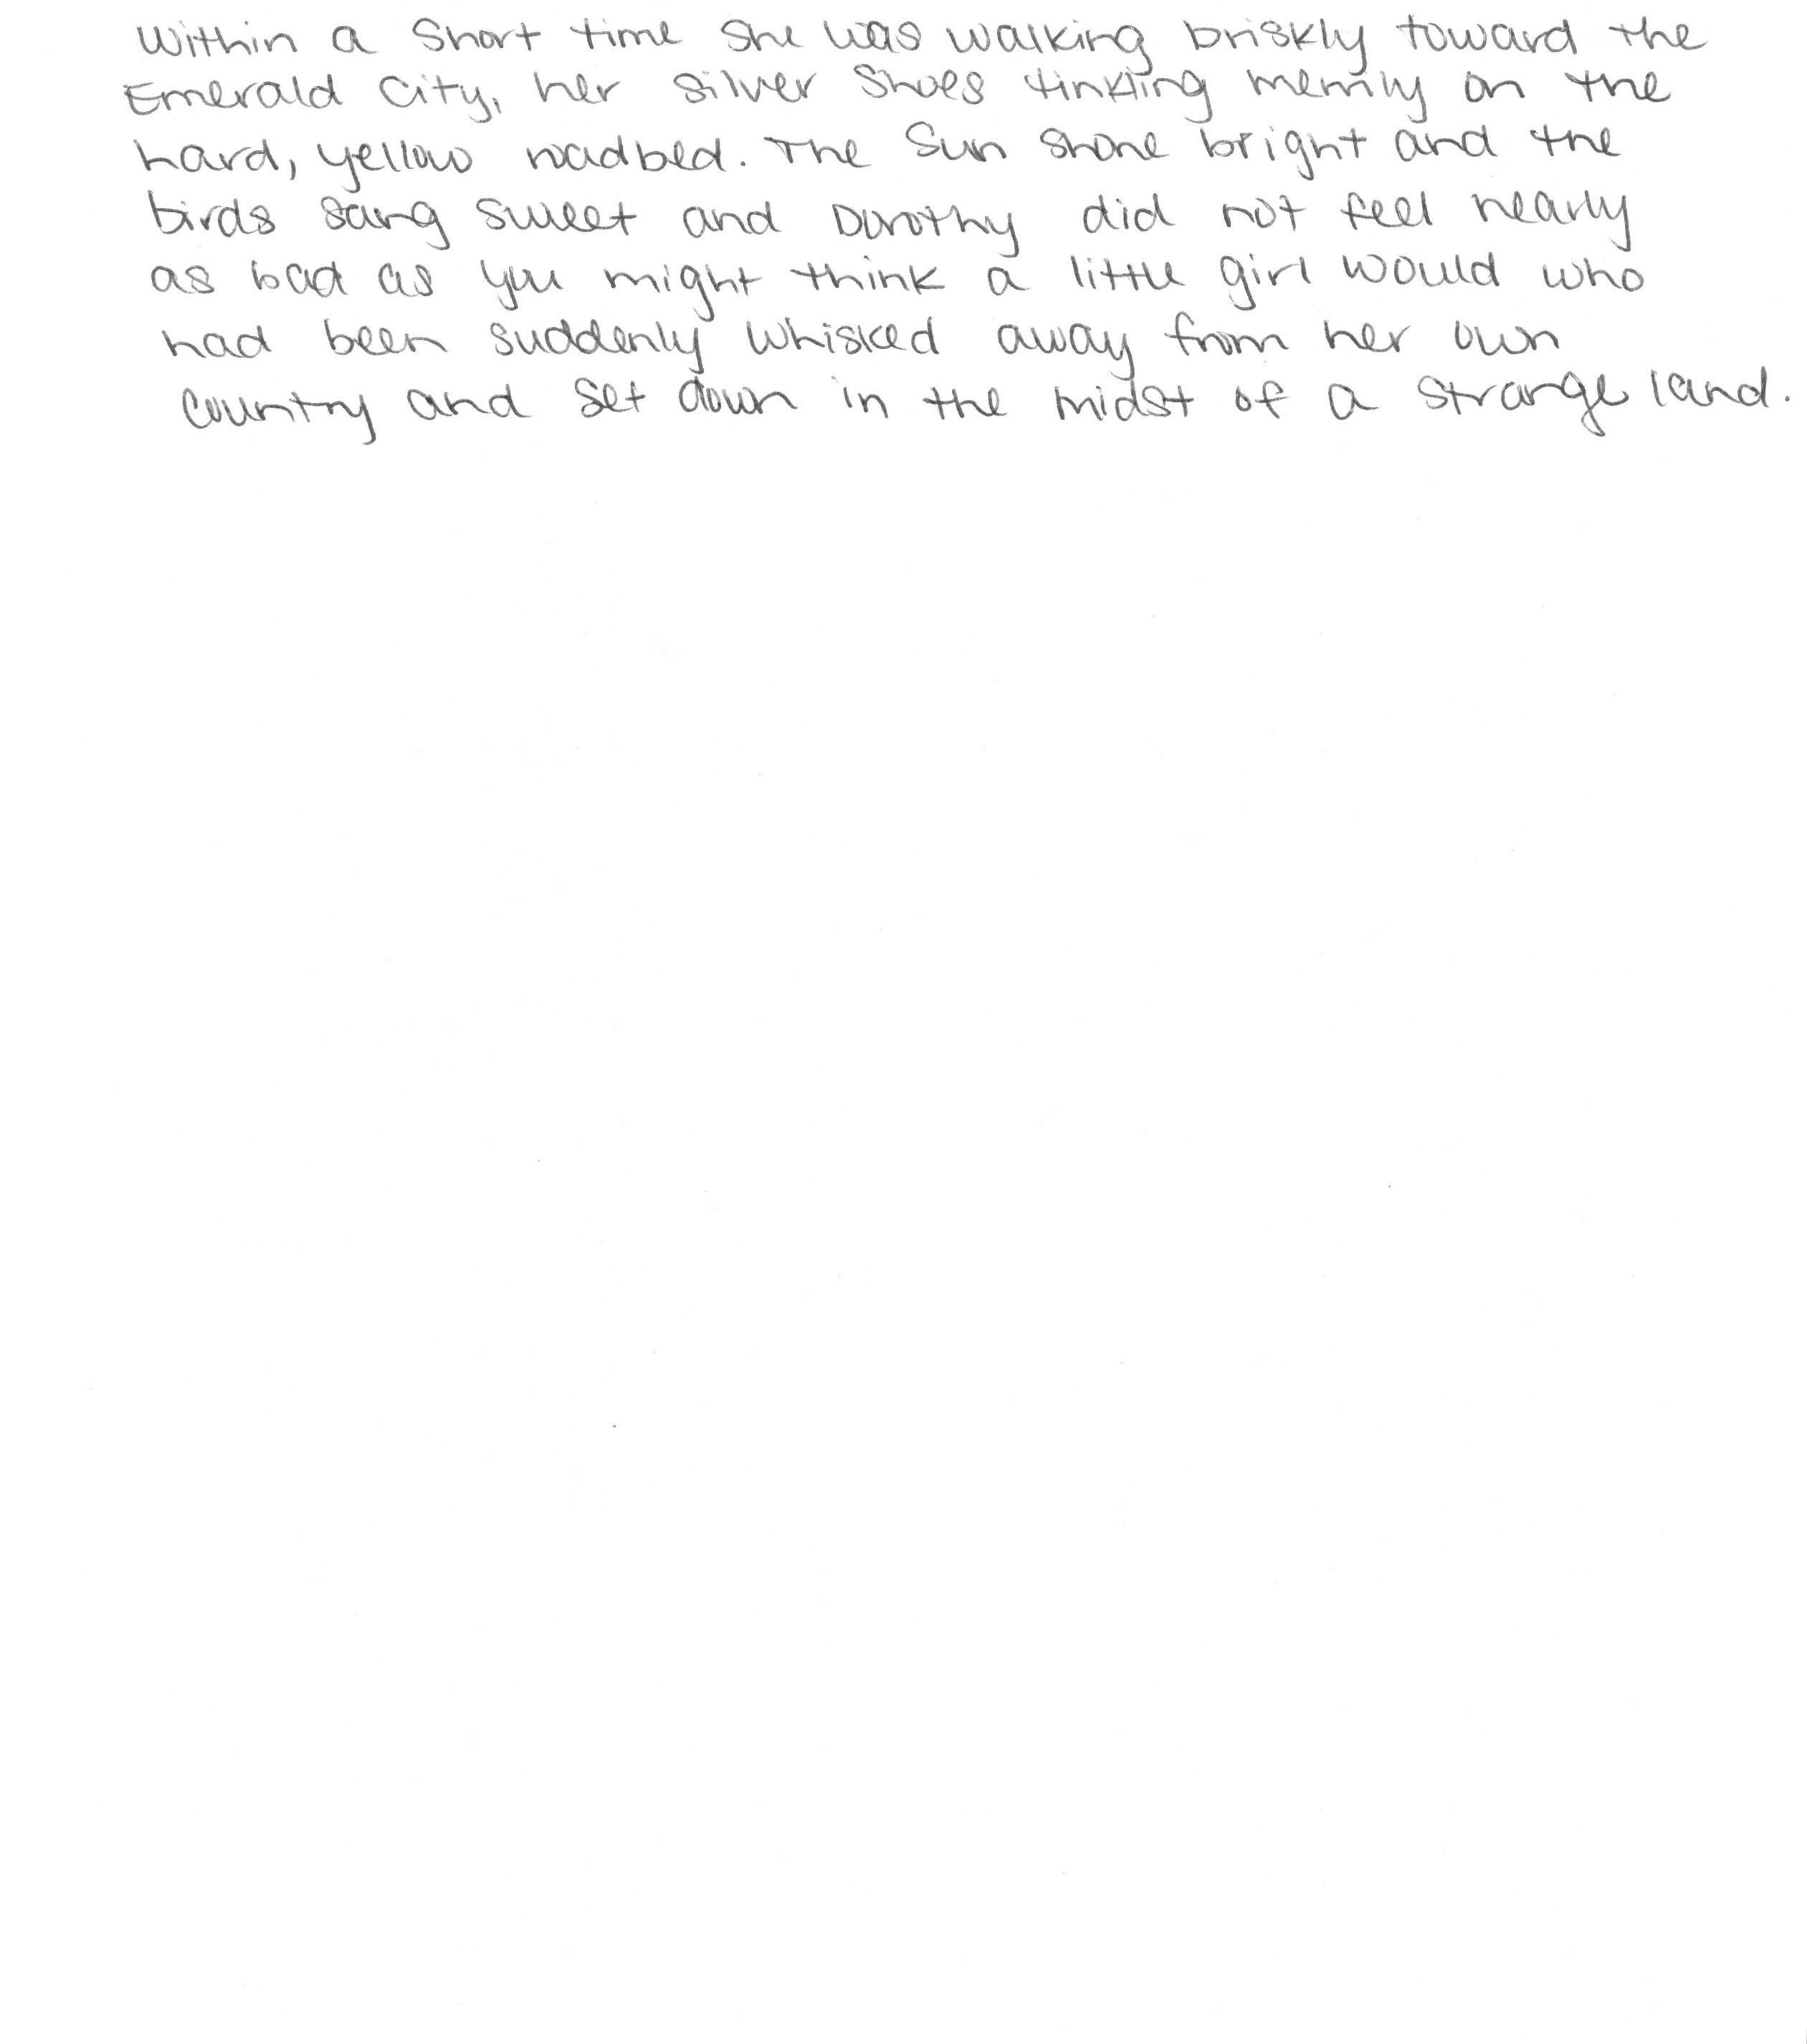 Within a short time she was walking briskly toward the
Emerald City, her silver shoes tinkling merrily on the
hard, yellow roadbed. The sun shone bright and the
birds sang sweet and Dorothy did not feel nearly
as bad as you might think a little girl would who
had been suddenly whisked away from her own
country and set down in the midst of a strange land.